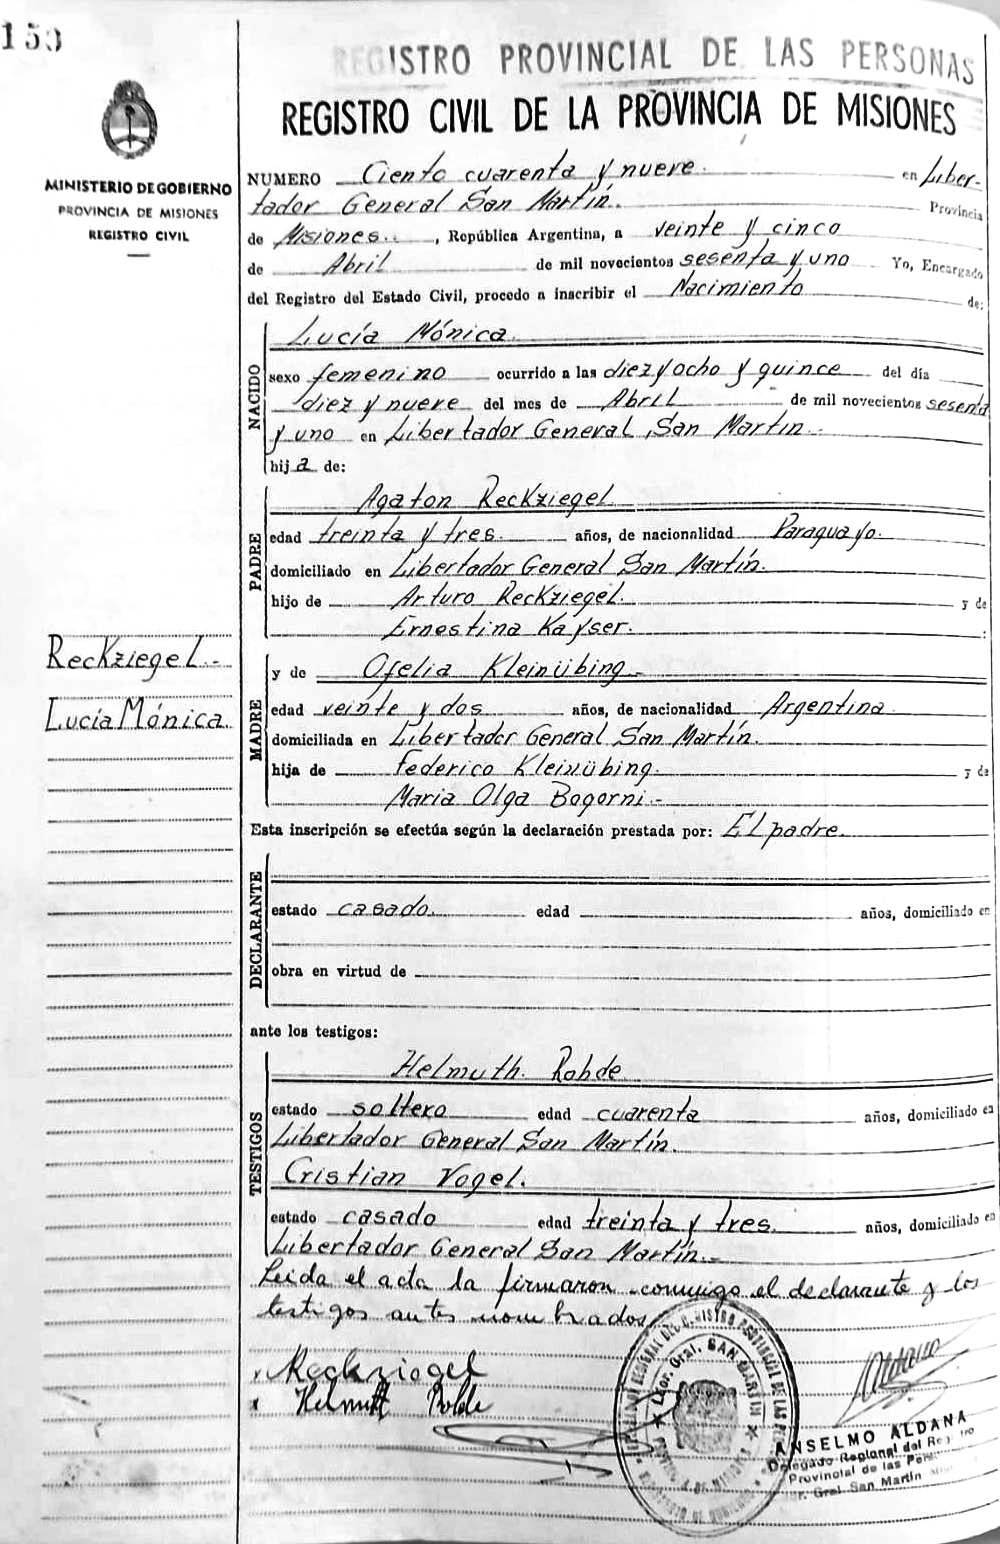 153
REGISTRO PROVINCIAL DE LAS PERSONAS
REGISTRO CIVIL DE LA PROVINCIA DE MISIONES
MINISTERIO DE GOBIERNO
PROVINCIA DE MISIONES
REGISTRO CIVIL
NUMERO Ciento cuarenta y nueve. en Liber-
tador General San Martín. Provincia
de Misiones. , República Argentina, a veinte y cinco
de Abril de mil novecientos sesenta y uno Yo, Encargado
del Registro del Estado Civil, procedo a inscribir el Nacimiento de:
NACIDO
Lucía Mónica.
sexo femenino ocurrido a las diez y ocho y quince del día
diez y nueve del mes de Abril de mil novecientos sesenta
y uno en Libertador General San Martín.-
hija de:
PADRE
Agaton Reckziegel
edad treinta y tres. años, de nacionalidad Paraguayo.
domiciliado en Libertador General San Martín.
hijo de Arturo Reckziegel. y de
Ernestina Kayser. :
Reckziegel.-
Lucía Mónica.
MADRE
y de Ofelia Kleinübing-
edad veinte y dos años, de nacionalidad Argentina
domiciliada en Libertador General San Martín.
hija de Federico Kleinübing. y de
Maria Olga Bogorni.-
Esta inscripción se efectúa según la declaración prestada por: El padre.
DECLARANTE
estado casado. edad años, domiciliado en
obra en virtud de
ante los testigos:
TESTIGOS
Helmuth. Rohde
estado soltero edad cuarenta años, domiciliado en
Libertador General San Martín.
Cristian Vogel.
estado casado edad treinta y tres. años, domiciliado en
Libertador General San Martín.-
Leida el acta la firmaron conmigo el declarante y los
testigos antes nombrados
Reckziegel
Helmuth Rohde
Aldana
Gral. SAN MARTIN
ANSELMO ALDANA
Delegado Regional del Registro
Provincial de las
Gral San Martin